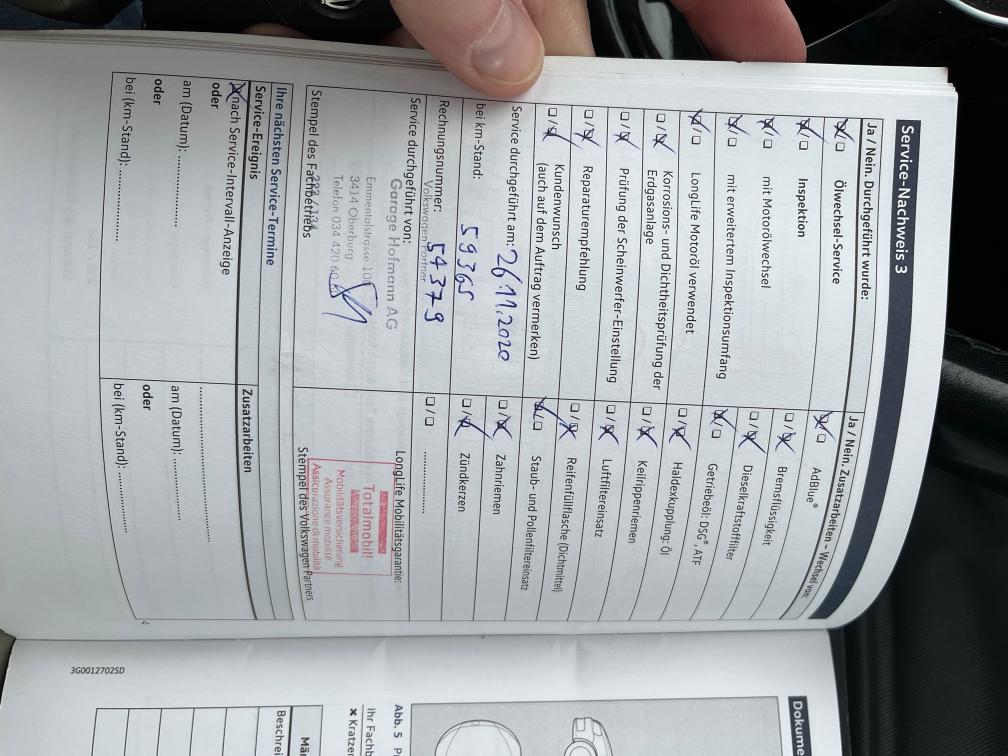 Service-Nachweis 3
Ja / Nein. Durchgeführt wurde:
☒/☐ Ölwechsel-Service
☒/☐ Inspektion
☒/☐ mit Motorölwechsel
☒/☐ mit erweitertem Inspektionsumfang
☒/☐ LongLife Motoröl verwendet
☐/☒ Korrosions- und Dichtheitsprüfung der
Erdgasanlage
☐/☒ Prüfung der Scheinwerfer-Einstellung
☐/☒ Reparaturempfehlung
☐/☒ Kundenwunsch
(auch auf dem Auftrag vermerken)
Service durchgeführt am: 26.11.2020
bei km-Stand: 59365
Rechnungsnummer: 54379
Service durchgeführt von:
Volkswagen Partner
Garage Hofmann AG
Emmentalstrasse 10
3414 Oberburg
Telefon 034 420
Stempel des Fachbetriebs
Ja / Nein. Zusatzarbeiten – Wechsel von:
☒/☐ AdBlue®
☐/☒ Bremsflüssigkeit
☐/☒ Dieselkraftstofffilter
☒/☐ Getriebeöl: DSG®, ATF
☐/☒ Haldexkupplung: Öl
☐/☒ Keilrippenriemen
☐/☒ Luftfiltereinsatz
☐/☒ Reifenfüllflasche (Dichtmittel)
☒/☐ Staub- und Pollenfiltereinsatz
☐/☒ Zahnriemen
☐/☒ Zündkerzen
☐/☐ ..............
LongLife Mobilitätsgarantie:
Totalmobil!
Mobilitätsversicherung
Assurance mobilité
Assicurazione di mobilità
Stempel des Volkswagen Partners
Ihre nächsten Service-Termine
Service-Ereignis
☒ nach Service-Intervall-Anzeige
oder
am (Datum): ..............
oder
bei (km-Stand): ..............
Zusatzarbeiten
..............................
am (Datum): ..............
oder
bei (km-Stand): ..............
3G0012702SD
Dokume
Abb. 5
Ihr Fachb
✖ Kratze
Män
Beschrei